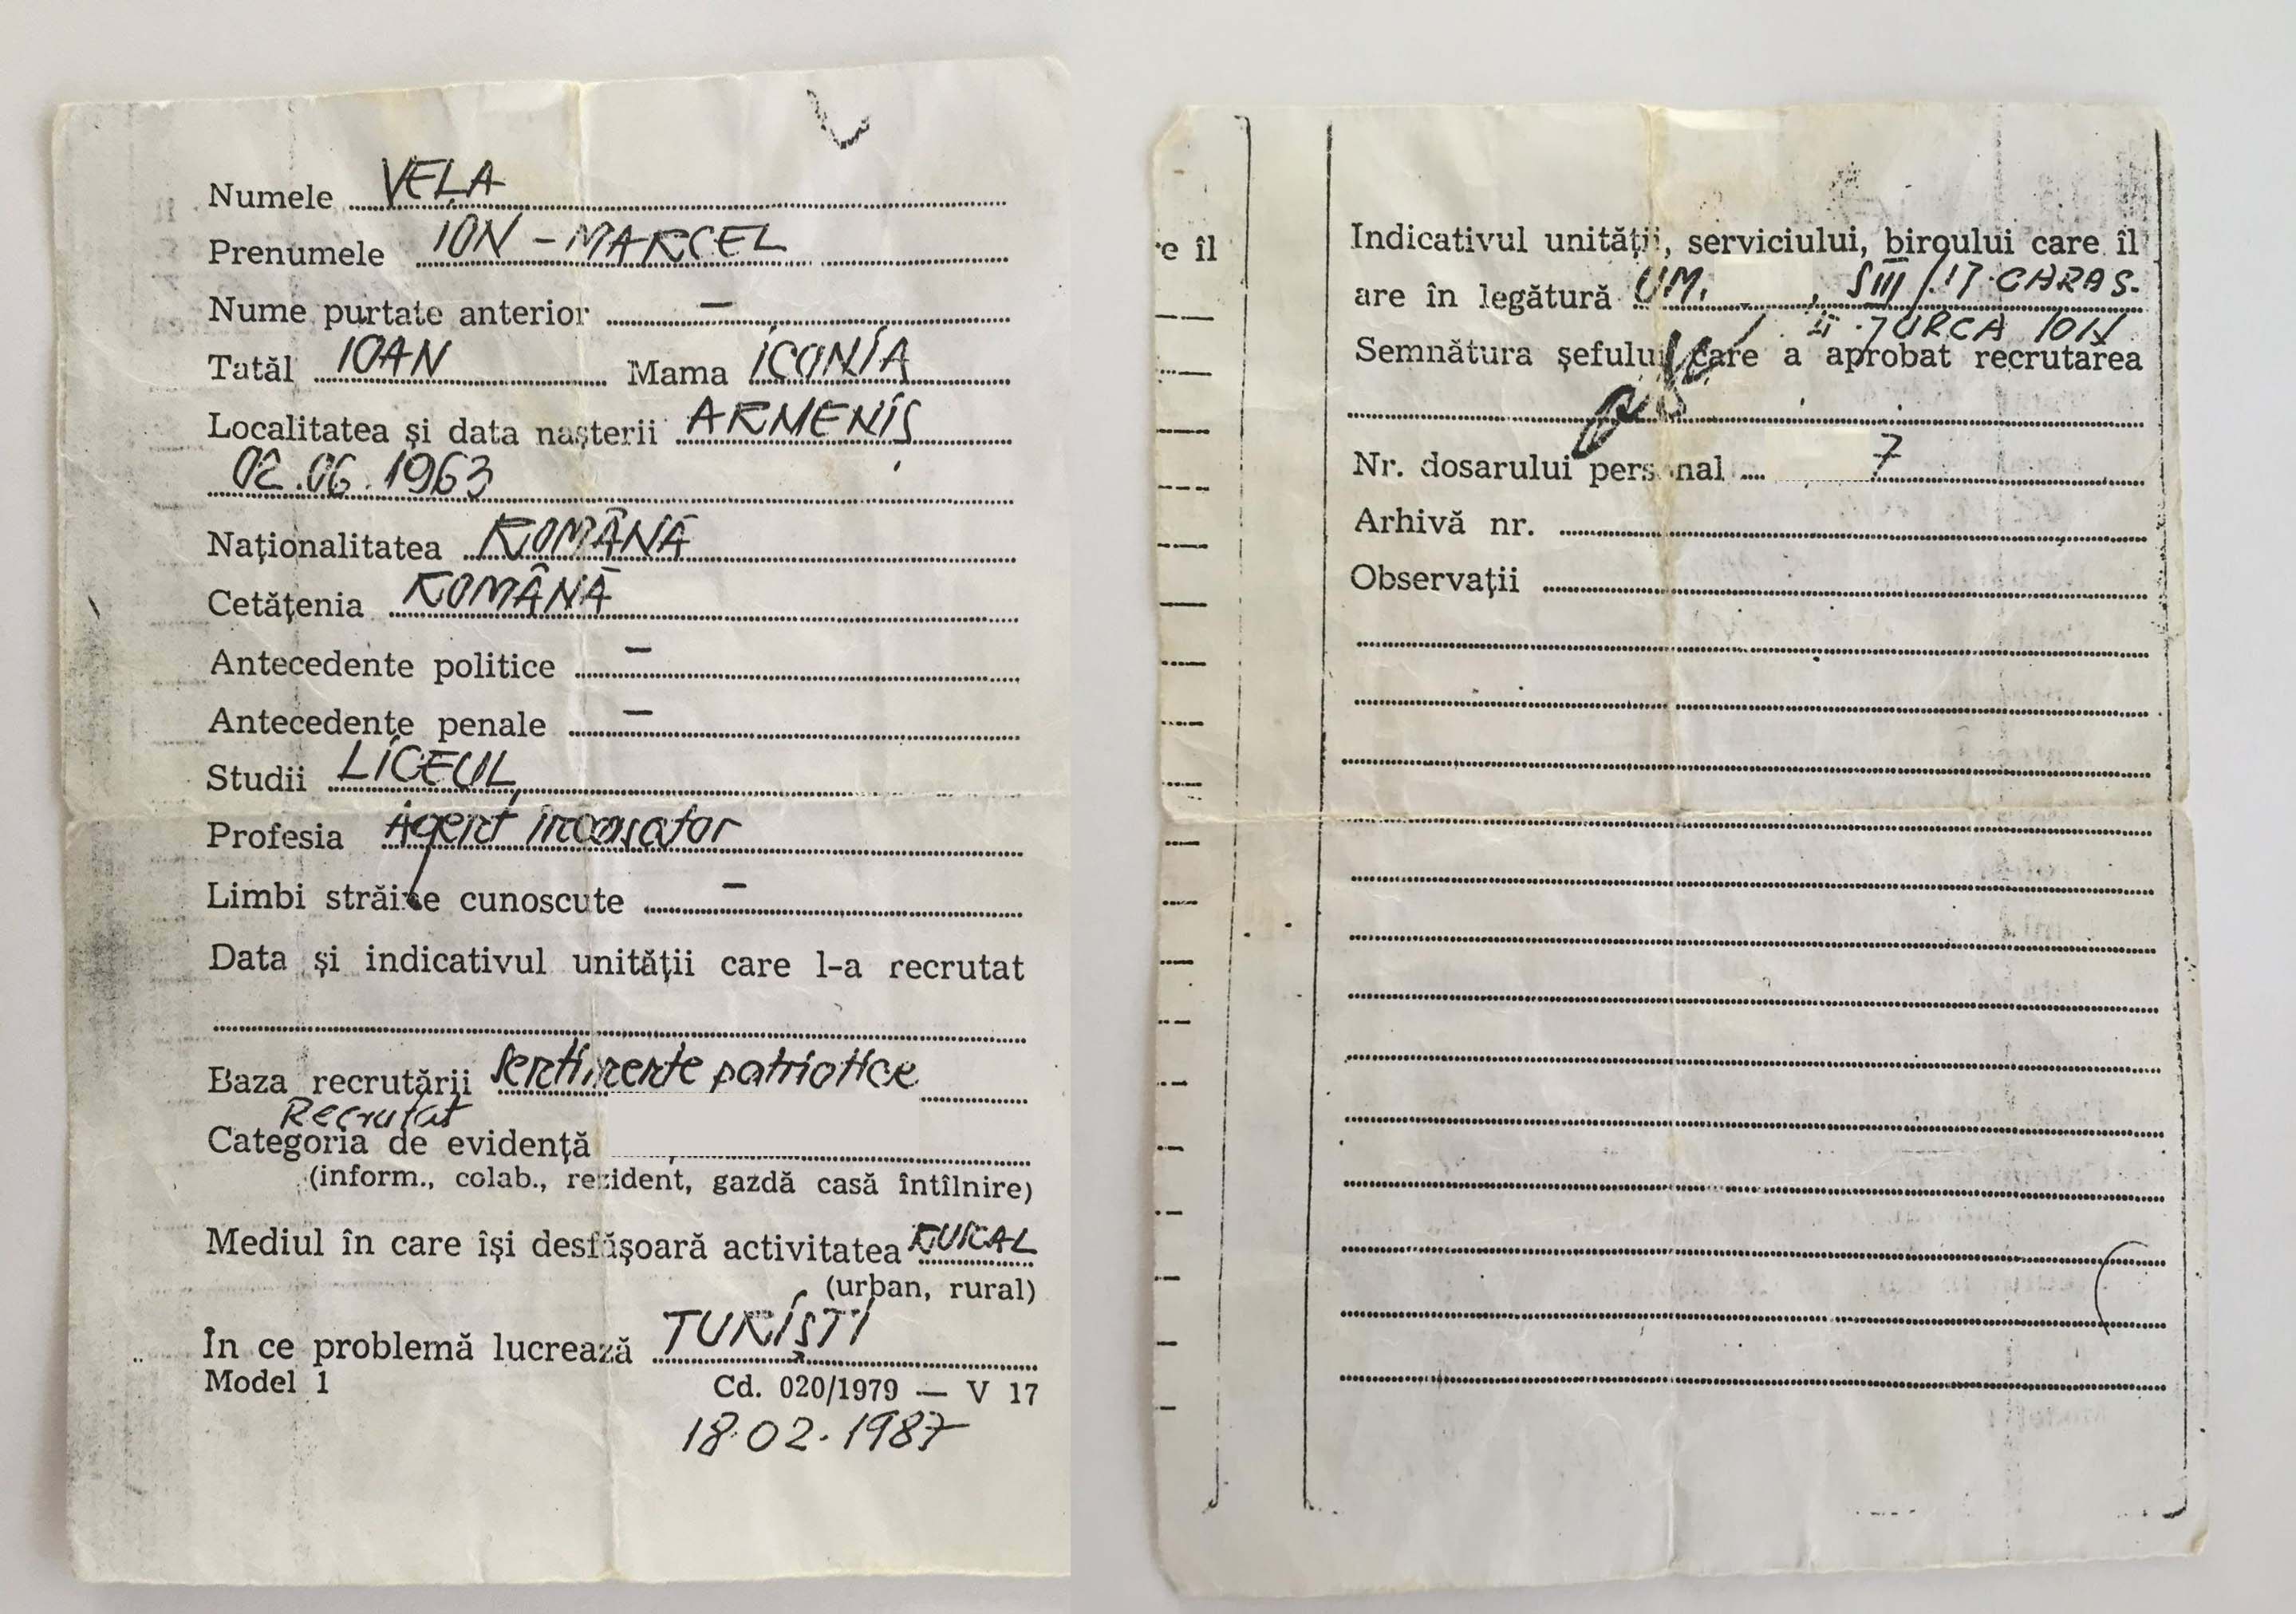 Numele VELA
Prenumele ION-MARCEL
Nume purtate anterior —
Tatăl IOAN Mama ICONIA
Localitatea și data nașterii ARMENIȘ
02.06.1963
Naționalitatea ROMÂNĂ
Cetățenia ROMÂNĂ
Antecedente politice —
Antecedente penale —
Studii LICEUL
Profesia Agent încasator
Limbi străine cunoscute —
Data și indicativul unității care l-a recrutat
Baza recrutării Sentimente patriotice
Recrutat
Categoria de evidență
(inform., colab., rezident, gazdă casă întîlnire)
Mediul în care își desfășoară activitatea RURAL
(urban, rural)
În ce problemă lucrează TURIȘTI
Model 1 Cd. 020/1979 — V 17
18.02.1987
e îl
Indicativul unității, serviciului, biroului care îl
are în legătură UM. , SIII/17·CARAS.
ȚURCA ION
Semnătura șefului care a aprobat recrutarea
Nr. dosarului personal 7
Arhivă nr.
Observații